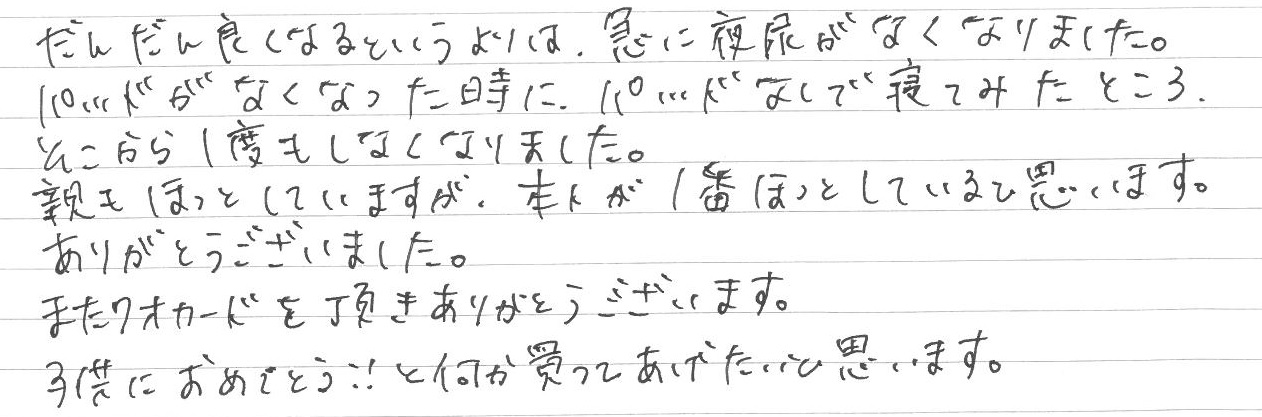 だんだん良くなるというよりは、急に夜尿がなくなりました。
パッドがなくなった時に、パッドなしで寝てみたところ、
そこから1度もしなくなりました。
親もほっとしていますが、本人が1番ほっとしていると思います。
ありがとうございました。
またクオカードを頂きありがとうございます。
子供におめでとう!!と何か買ってあげたいと思います。